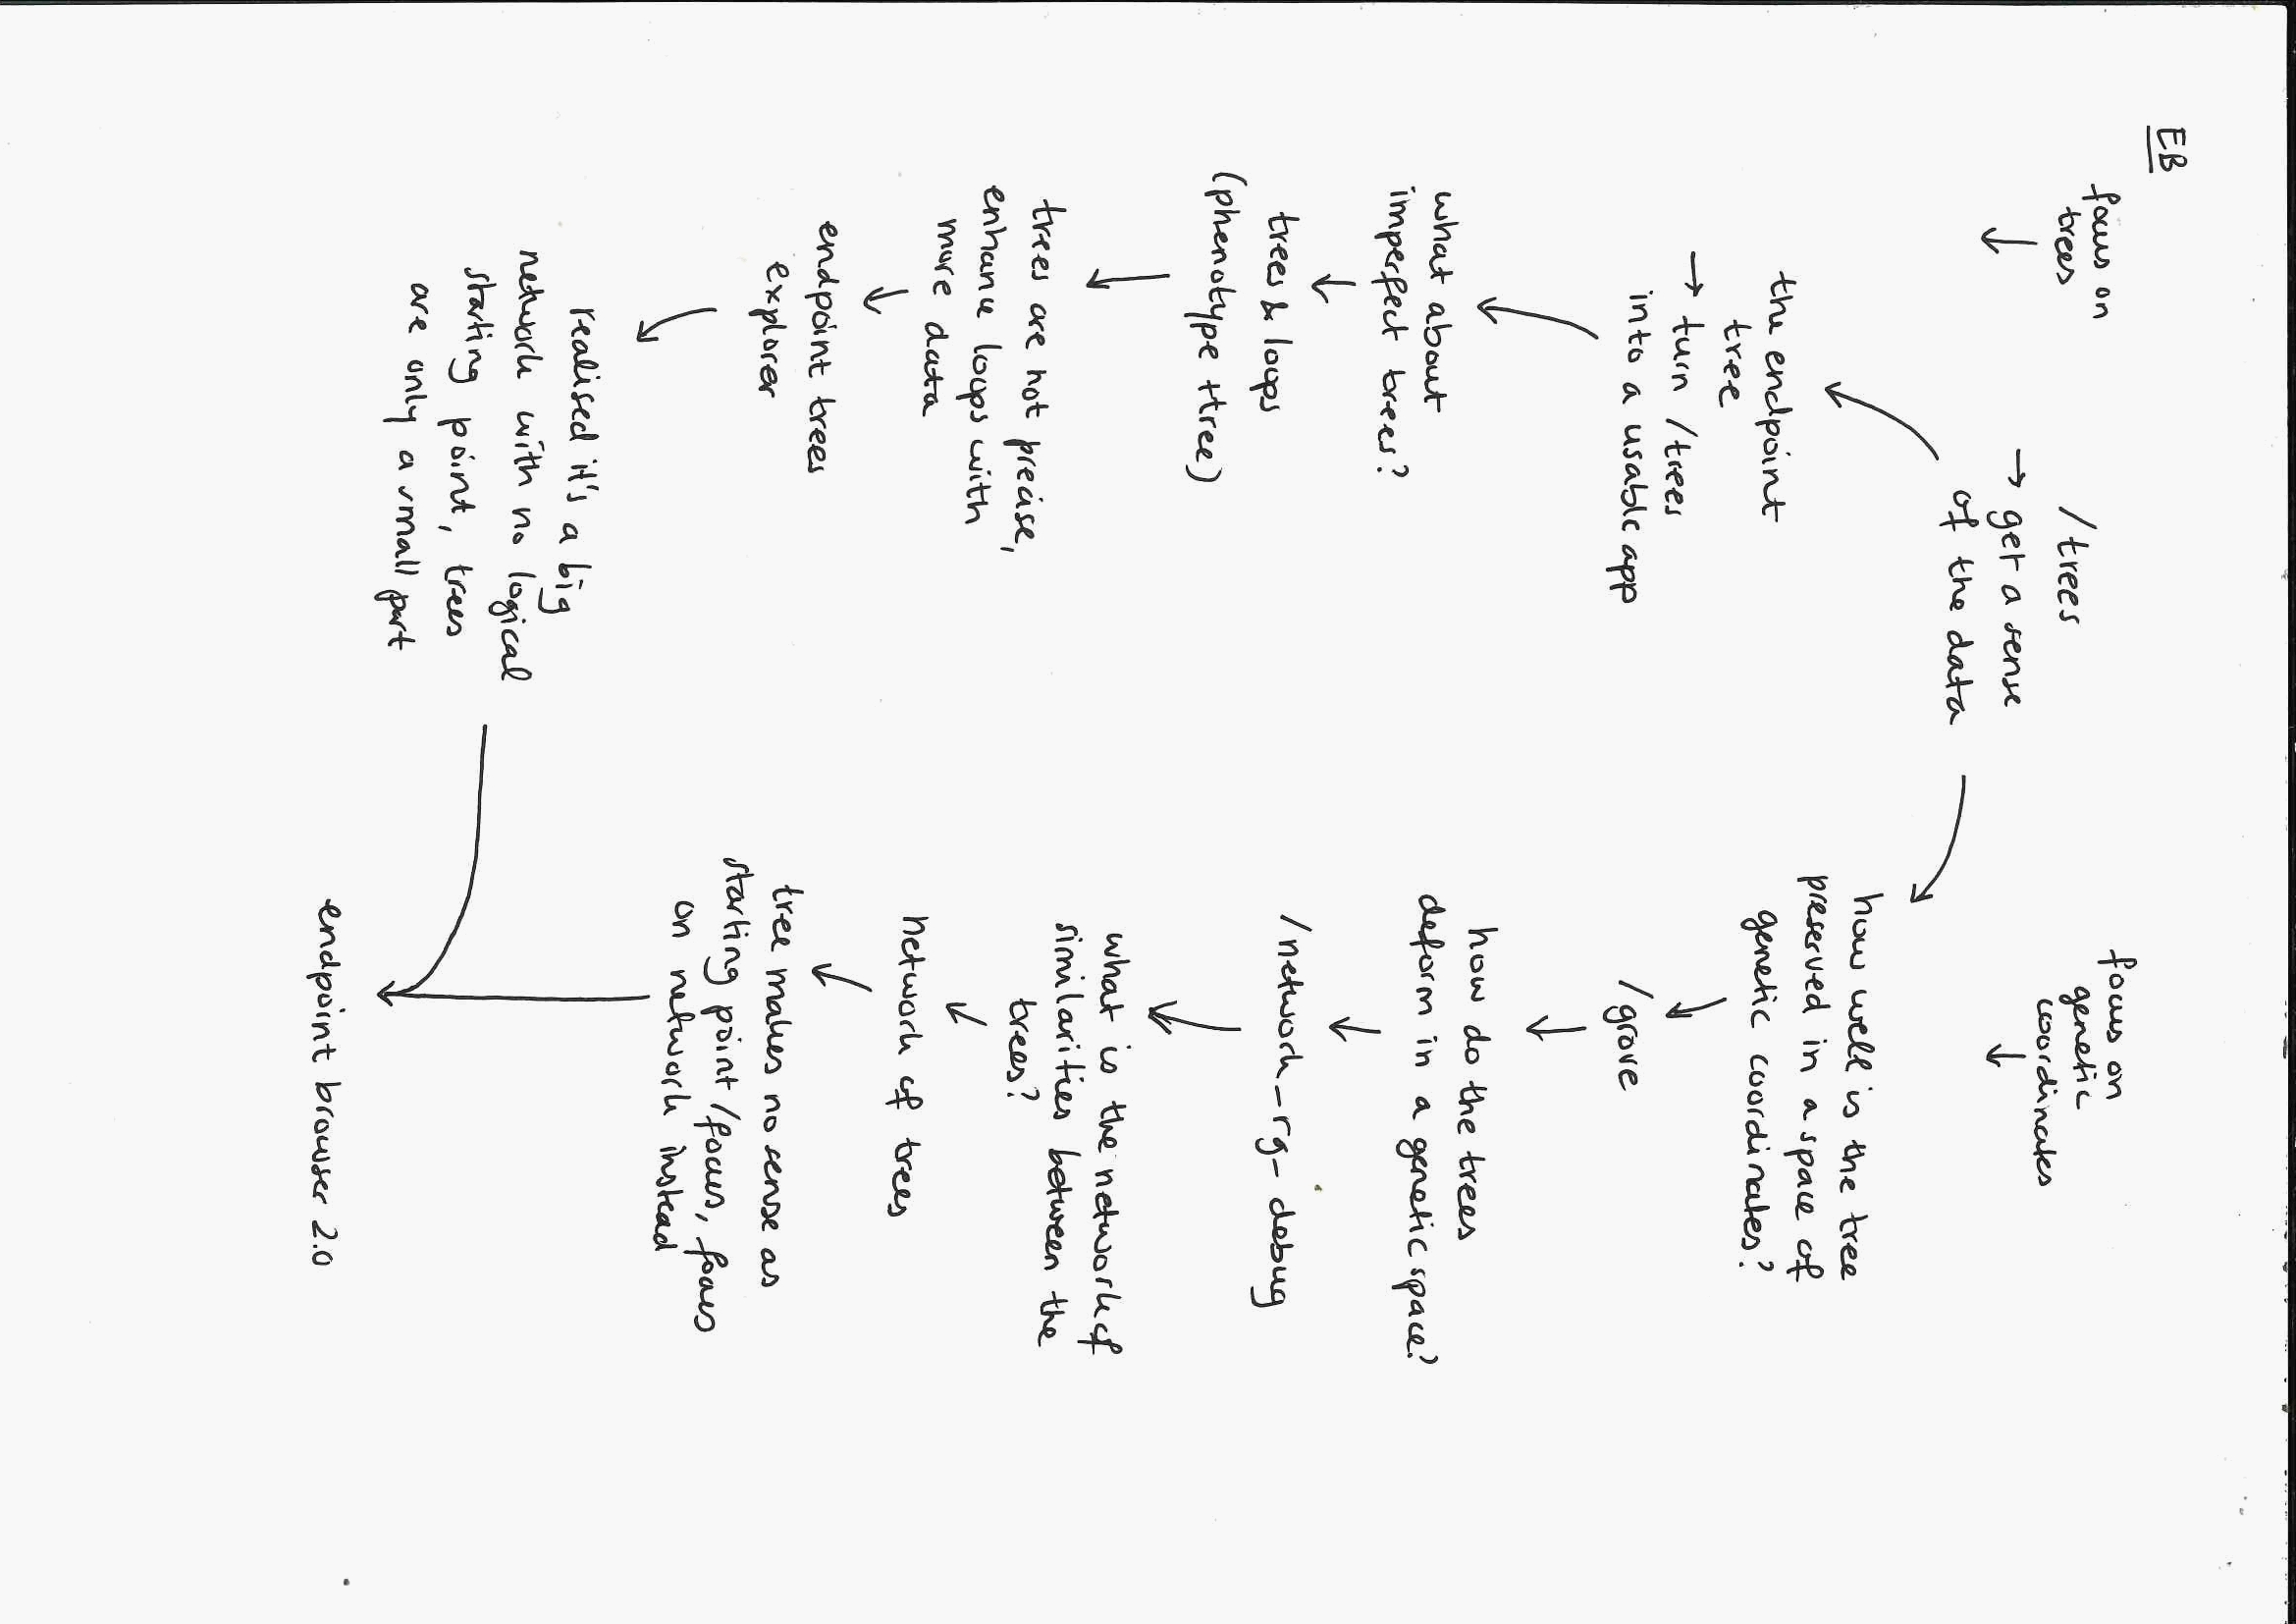 EB
focus on
trees
↓
/trees
→ get a sense
of the data
focus on
genetic
coordinates
↓
the endpoint
tree
→ turn /trees
into a usable app
what about
imperfect trees?
↓
trees & loops
(phenotype +tree)
↓
trees are not precise,
enhance loops with
more data
↓
endpoint trees
explorer
↓
realised it's a big
network with no logical
starting point, trees
are only a small part
how well is the tree
preserved in a space of
genetic coordinates?
↓
/grove
↓
how do the trees
deform in a genetic space?
↓
/network_rg_debug
↓
what is the network of
similarities between the
trees?
↓
network of trees
↓
tree makes no sense as
starting point/focus, focus
on network instead
↓
endpoint browser 2.0